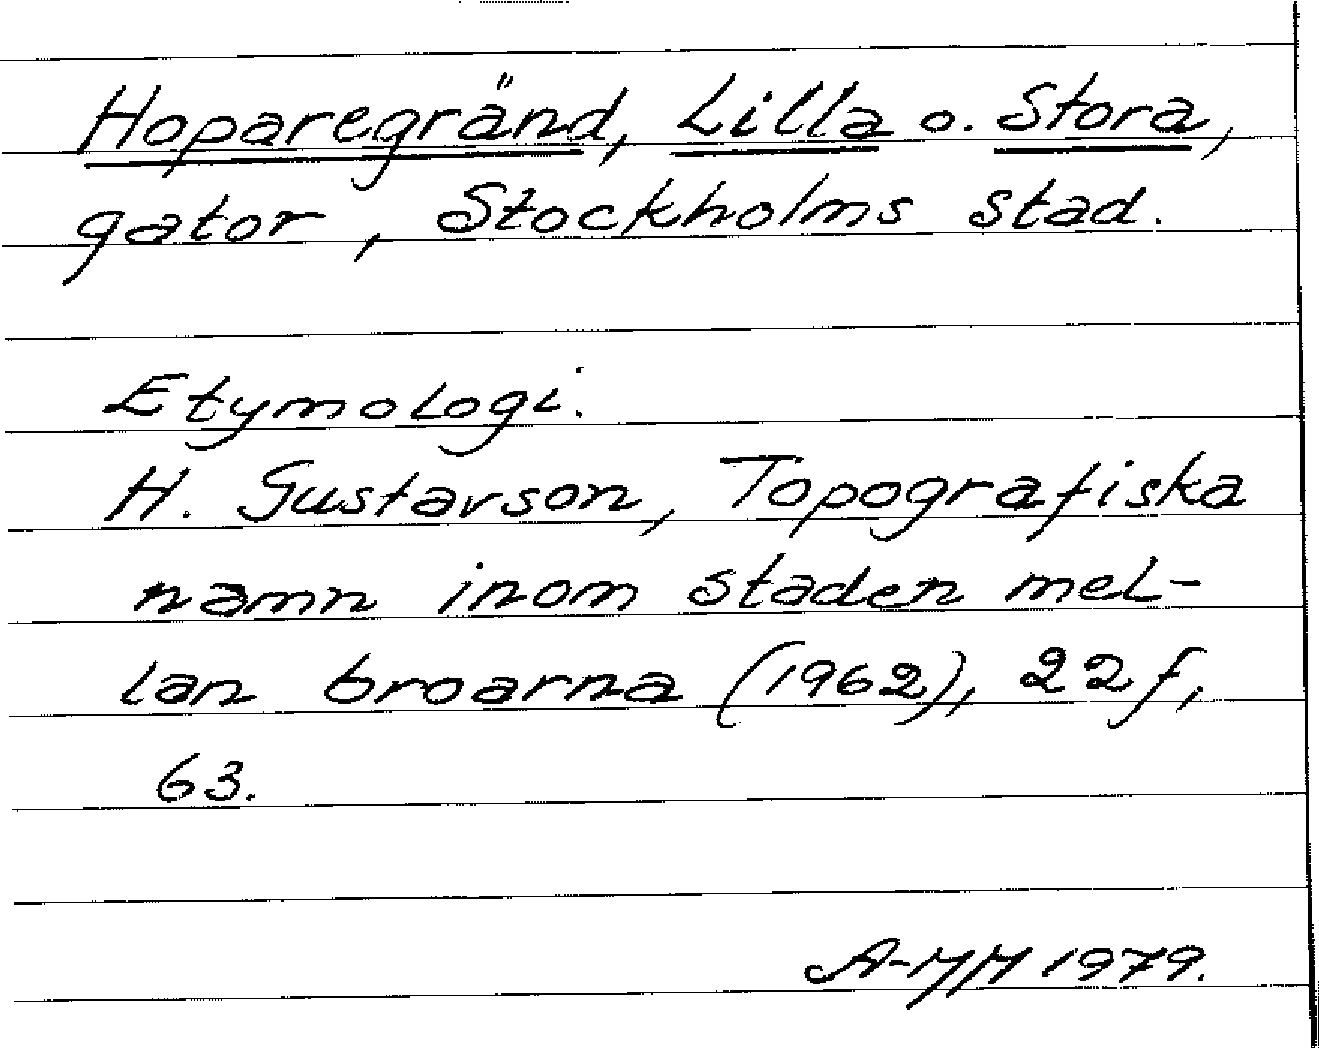 Hoparegränd, Lilla o. Stora,
gator, Stockholms stad.
Etymologi.
H. Gustavson, Topografiska
namn inom staden mel-
lan broarna (1962), 22f,
63.
1979.